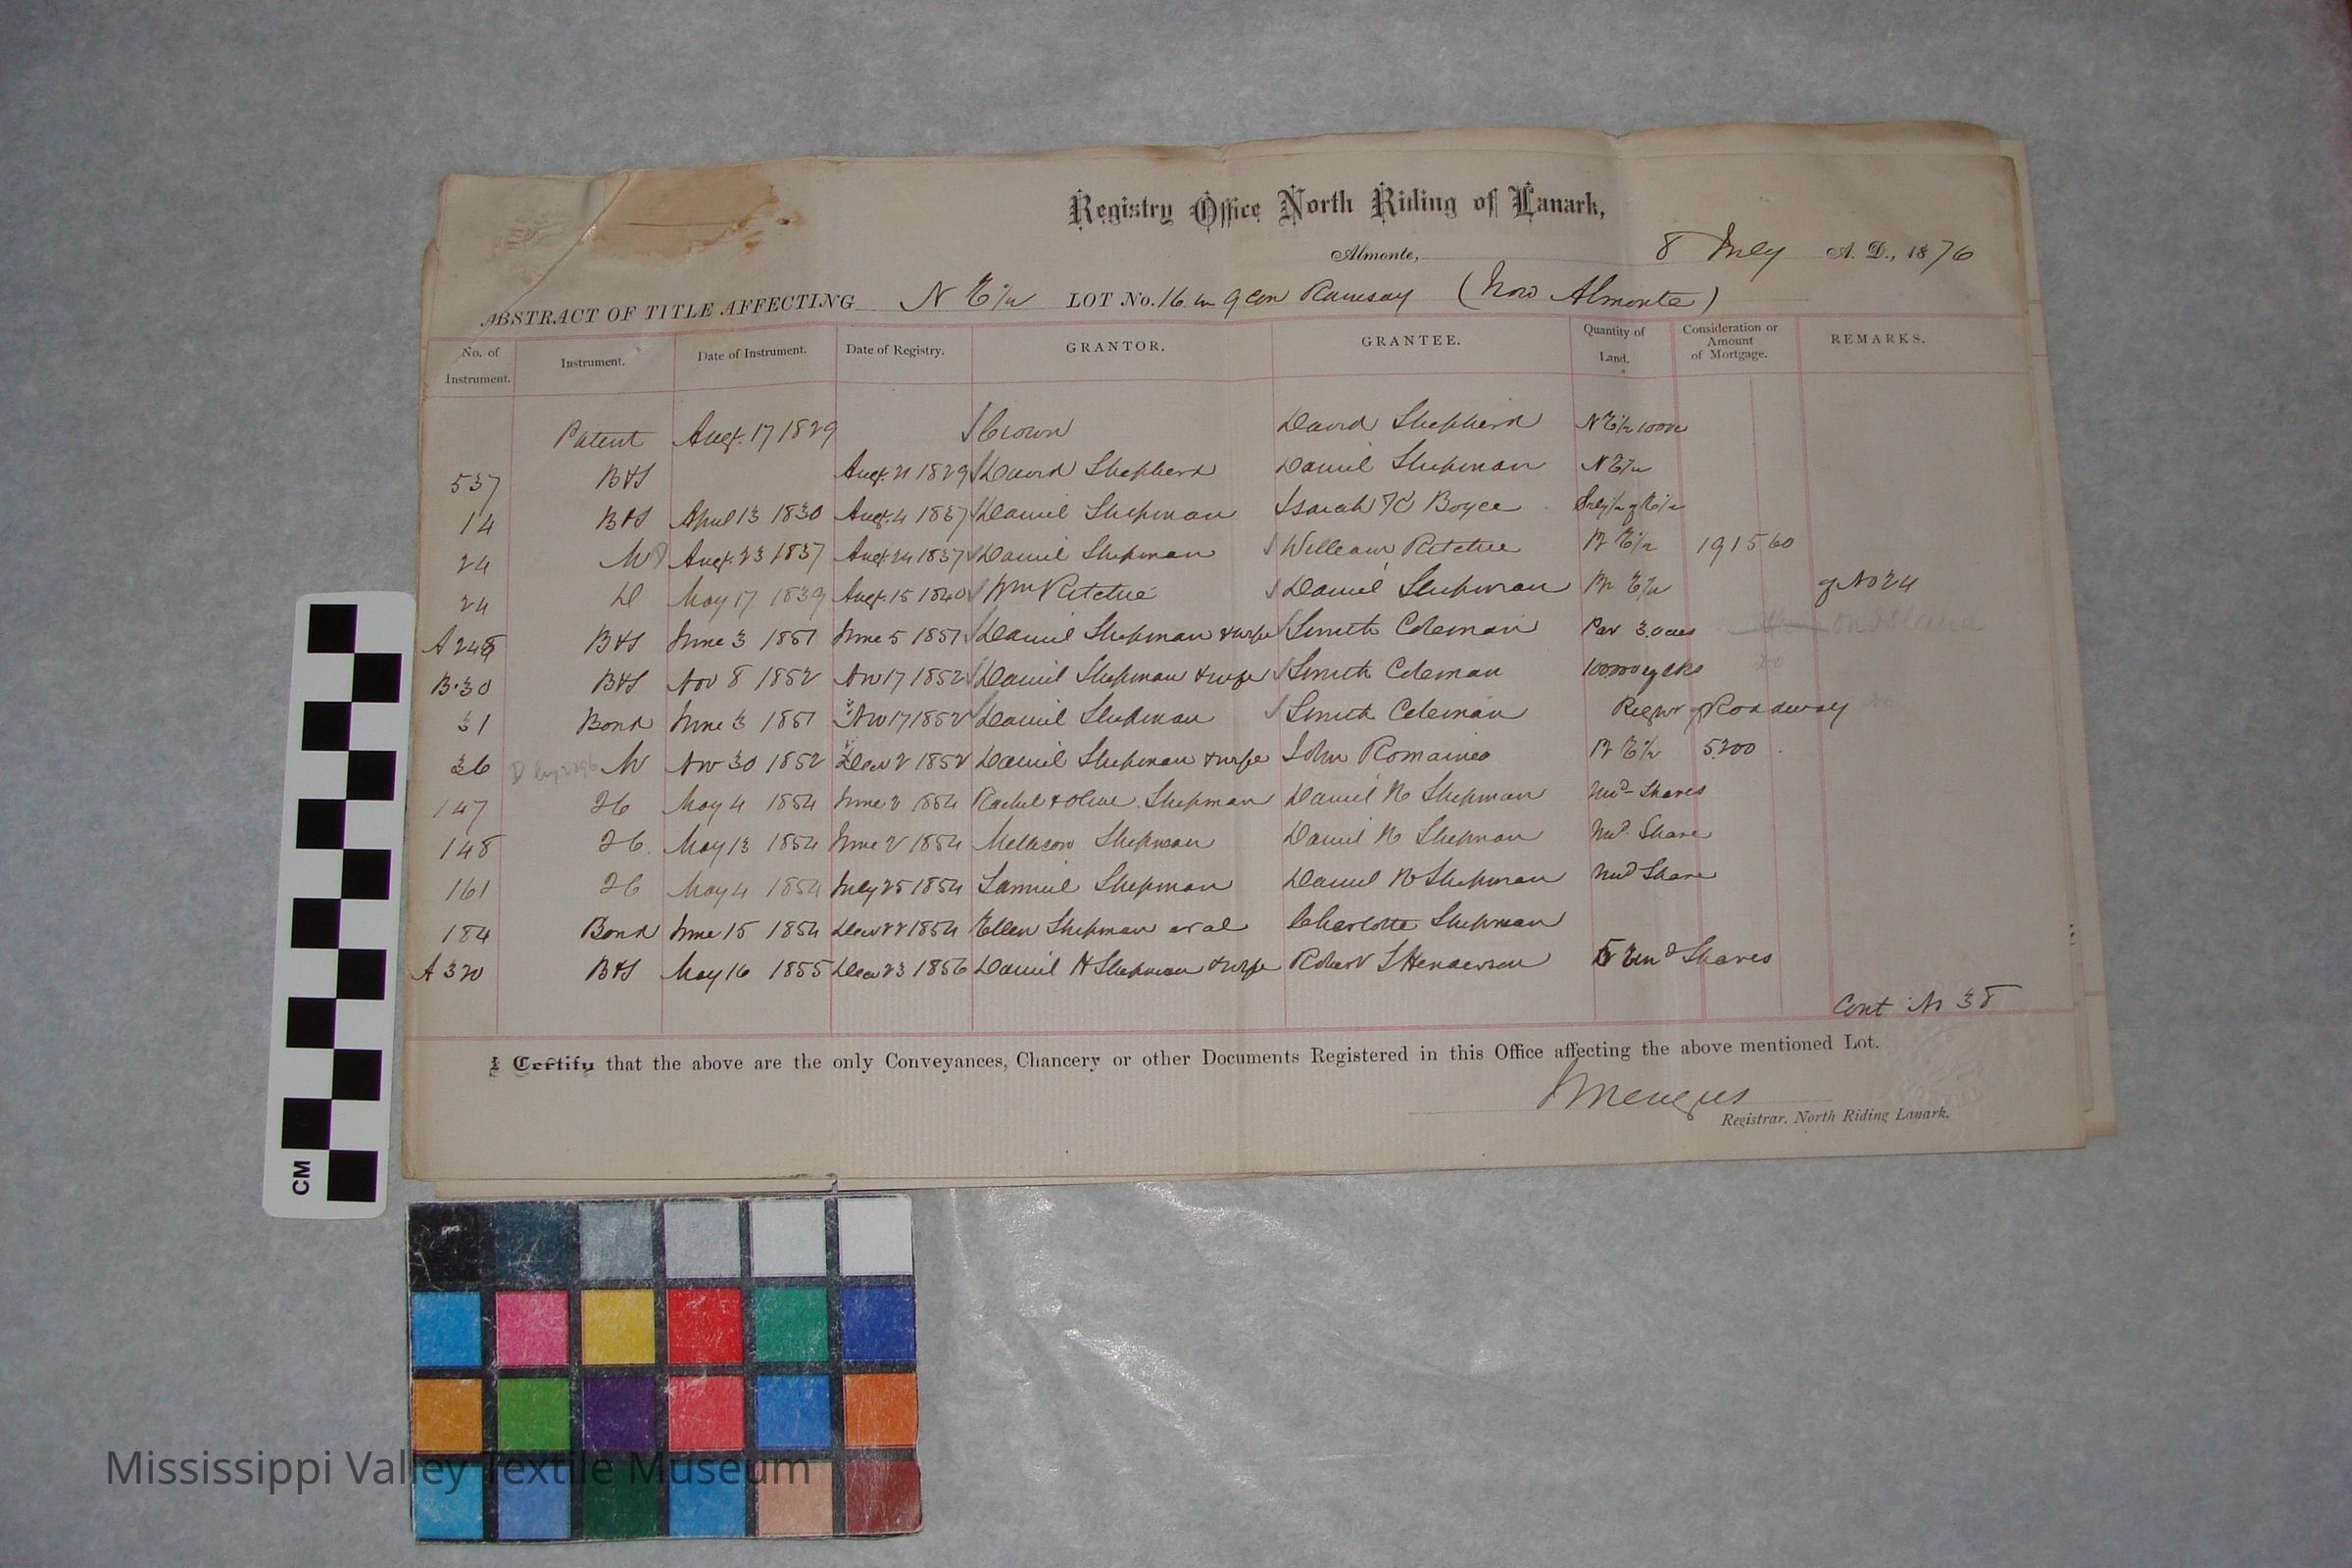 Registry Office North Riding of Lanark,
Almonte, 8 July A. D., 1876
ABSTRACT OF TITLE AFFECTING N E ½ LOT No. 16 in 9 Con Ramsay (Now Almonte)
No. of Instrument. Instrument. Date of Instrument. Date of Registry. GRANTOR. GRANTEE. Quantity of Land. Consideration or Amount of Mortgage. REMARKS.
Patent Augt. 17 1829 Crown David Shepherd N E ½ 100
537 B&S Augt. 21 1829 David Shepherd Daniel Shipman N E ½
14 B&S April 13 1830 Augt. 4 1837 Daniel Shipman Isaiah Boyce
24 M Augt. 23 1837 Augt 24 1837 Daniel Shipman William Ritchie N E ½ 1915 60
24 D May 17 1839 Augt. 15 1840 Wm Ritchie Daniel Shipman N E ½ of No 24
A 248 B&S June 3 1851 June 5 1851 Daniel Shipman & wife Smith Coleman Par 3 acres
B.30 B&S Nov 8 1852 Nov 17 1852 Daniel Shipman & wife Smith Coleman
31 Bond June 3 1851 Nov 17 1852 Daniel Shipman Smith Coleman of Roadway
36 M Nov 30 1852 Decr 2 1852 Daniel Shipman & wife John Romaines N E ½ 5200
147 May 4 1854 June 2 1854 Rachel & Olive Shipman Daniel Shipman Und Shares
148 May 13 1854 June 2 1854 Shipman Daniel Shipman Und. Share
161 May 4 1854 July 25 1854 Samuel Shipman Daniel Shipman Und Share
184 Bond June 15 1854 Decr 22 1854 Ellen Shipman et al Charlotte Shipman
A 320 B&S May 16 1855 Decr 23 1856 Daniel Shipman & wife Robert Henderson Und Shares
Cont in 38
I Certify that the above are the only Conveyances, Chancery or other Documents Registered in this Office affecting the above mentioned Lot.
Registrar. North Riding Lanark.
CM
Mississippi Valley Textile Museum